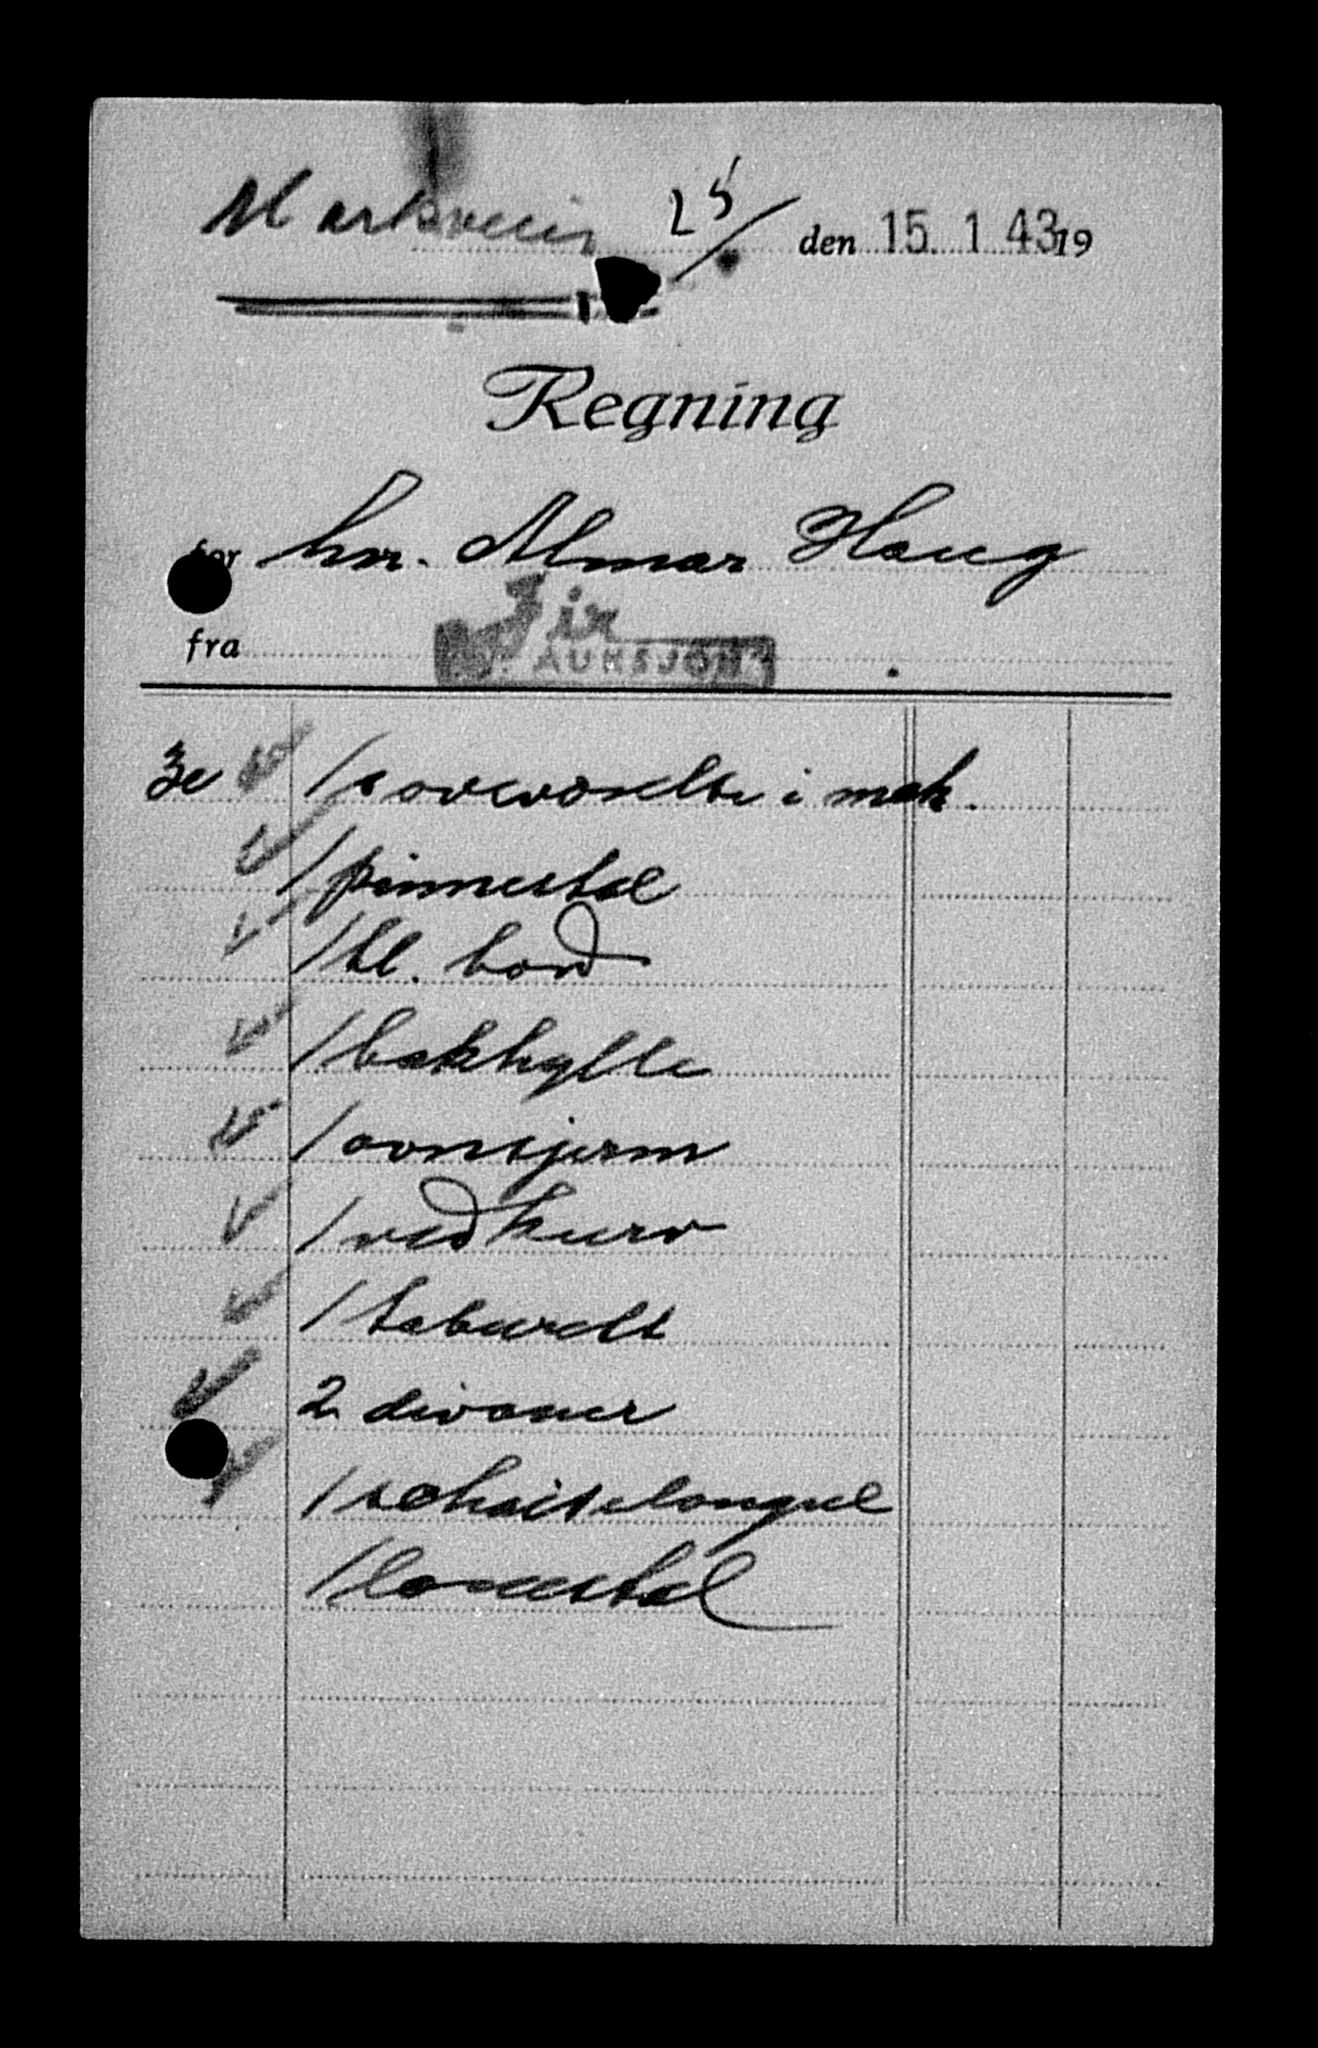 Markveien 25/ den 15. 1. 43 19
Regning
for hr. Almar Haug
fra AUKSJON
1 soveværelse i mah.
1 pinnestol
1 kl. bord
1 bokhylle
1 ovnsjerm
1 vedkurv
1 taburett
2 divaner
1 schaiselongue